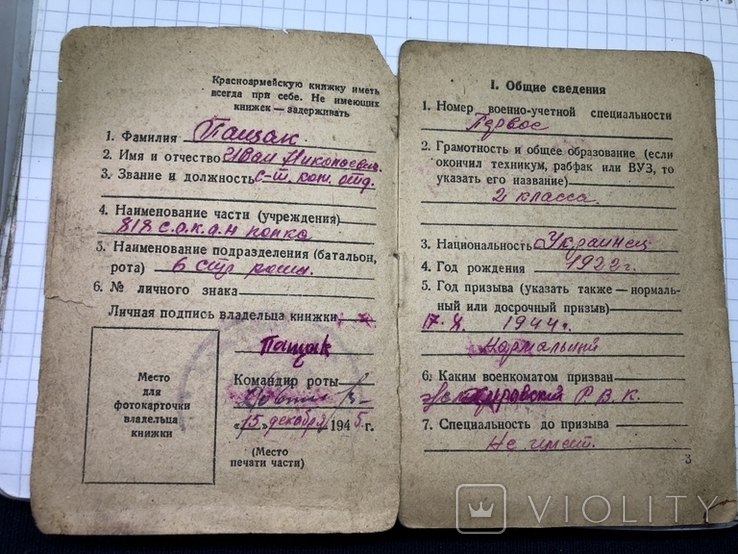 Красноармейскую книжку иметь
всегда при себе. Не имеющих
книжек — задерживать
1. Фамилия Пащак
2. Имя и отчество Иван Николаевич
3. Звание и должность с-т. ком. отд.
4. Наименование части (учреждения)
818 с.о.к.а.н полка
5. Наименование подразделения (батальон,
рота) 6 стр роты.
6. № личного знака
Личная подпись владельца книжки
Пащак
Место
для
фотокарточки
владельца
книжки
Командир роты
«15» декабря 1945 г.
(Место
печати части)
I. Общие сведения
1. Номер военно-учетной специальности
Первое
2. Грамотность и общее образование (если
окончил техникум, рабфак или ВУЗ, то
указать его название)
2 класса.
3. Национальность Украинец
4. Год рождения 1922 г.
5. Год призыва (указать также — нормаль-
ный или досрочный призыв)
1944 г.
Нормальный
6. Каким военкоматом призван
Р. В. К.
7. Специальность до призыва
Не имеет.
3
VIOLITY